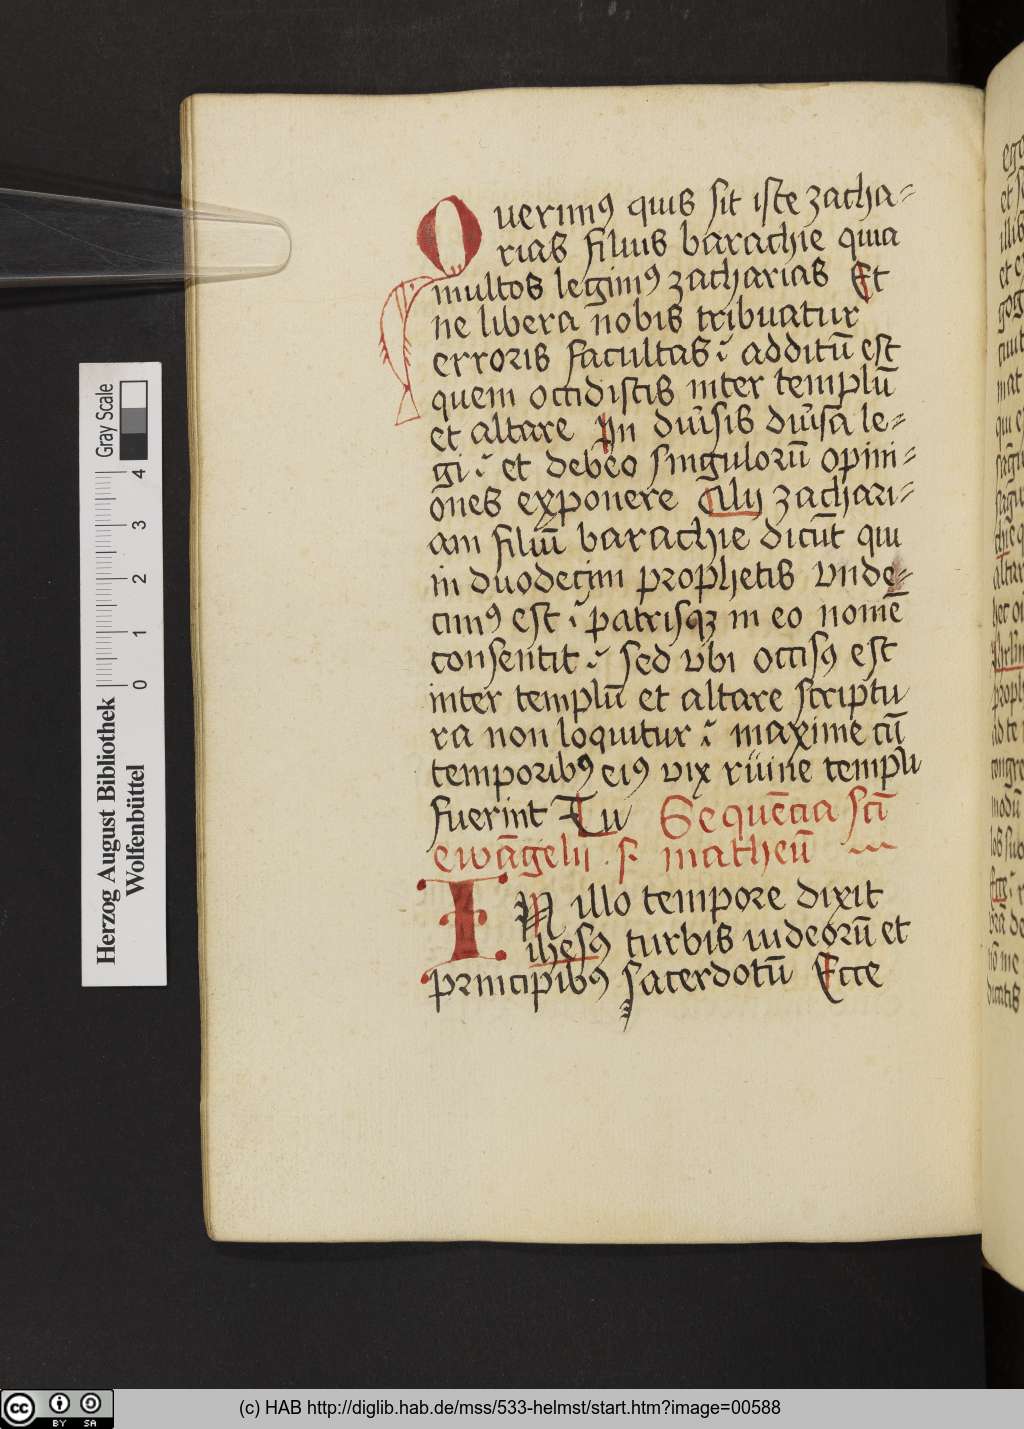 Querimꝰ quis sit iste zacha⸗
rias filius barachie quia
multos legimꝰ zacharias Et
ne libera nobis tribuatur
erroris facultas ⁏ additū est
quem occidistis inter templū
et altare In diu͛sis diu͛sa le⸗
gi ⁏ et debeo singulorū opini⸗
ones exponere Alij zachari⸗
am filiū barachie dicūt qui
in duodecim prophetis vnde⸗
cimꝰ est ⁏ patrisqꝫ in eo nomē
consentit ⁏ sed vbi occisꝰ est
inter templū et altare scriptu
ra non loquitur ⁏ maxime cū
temporibꝰ eiꝰ vix ruine templi
fuerint Tu Sequēcia scī
ewāgelij . s. matheū
IN illo tempore dixit
ihesꝰ turbis iudeorū et
principibꝰ sacerdotū Ecce
Herzog August Bibliothek
Wolfenbüttel
Gray Scale
0 1 2 3 4
cc BY SA
(c) HAB http://diglib.hab.de/mss/533-helmst/start.htm?image=00588